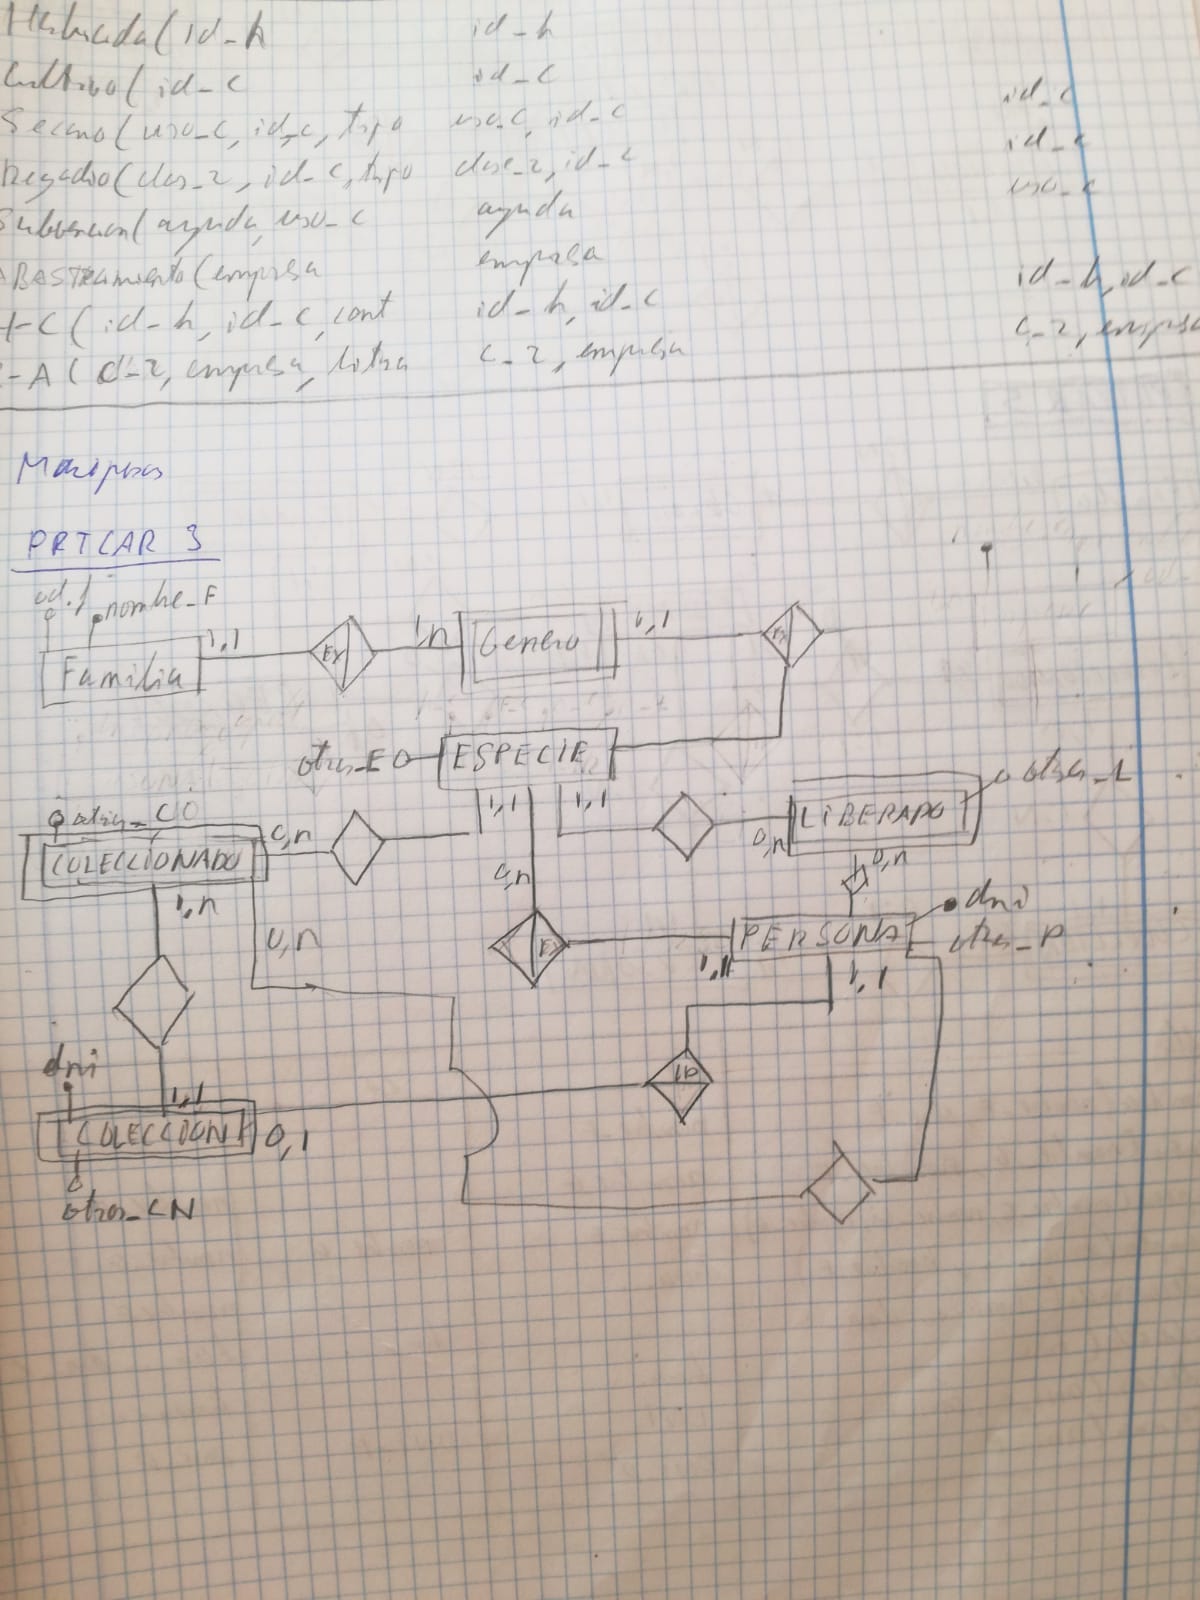 (id_h id_h
Cultivo( id_c id_c id_c
Secano( uso_c, id_c, tipo uso_c, id_c id_c
Regadio( clas_r, id_c, tipo clase_r, id_c uso_c
Subvencion( ayuda, uso_c ayuda
ABASTECIMIENTO( empresa empresa
H-C( id_h, id_c, cant id_h, id_c id_h, id_c
-A( c_r, empresa, litra c_r, empresa c_r, empresa
Mariposas
PRTCAR 3
nombre_F
Familia 1,1 Ex 1,n Genero 1,1 Ex
otros_E ESPECIE
1,1 1,1 otros_L
COLECCIONADO 0,n 0,n LIBERADO
0,n
1,n 0,n dni
0,n Ex 1,n PERSONA otros_P
1,1
dni ID
1,1
COLECCION 0,1
otros_CN